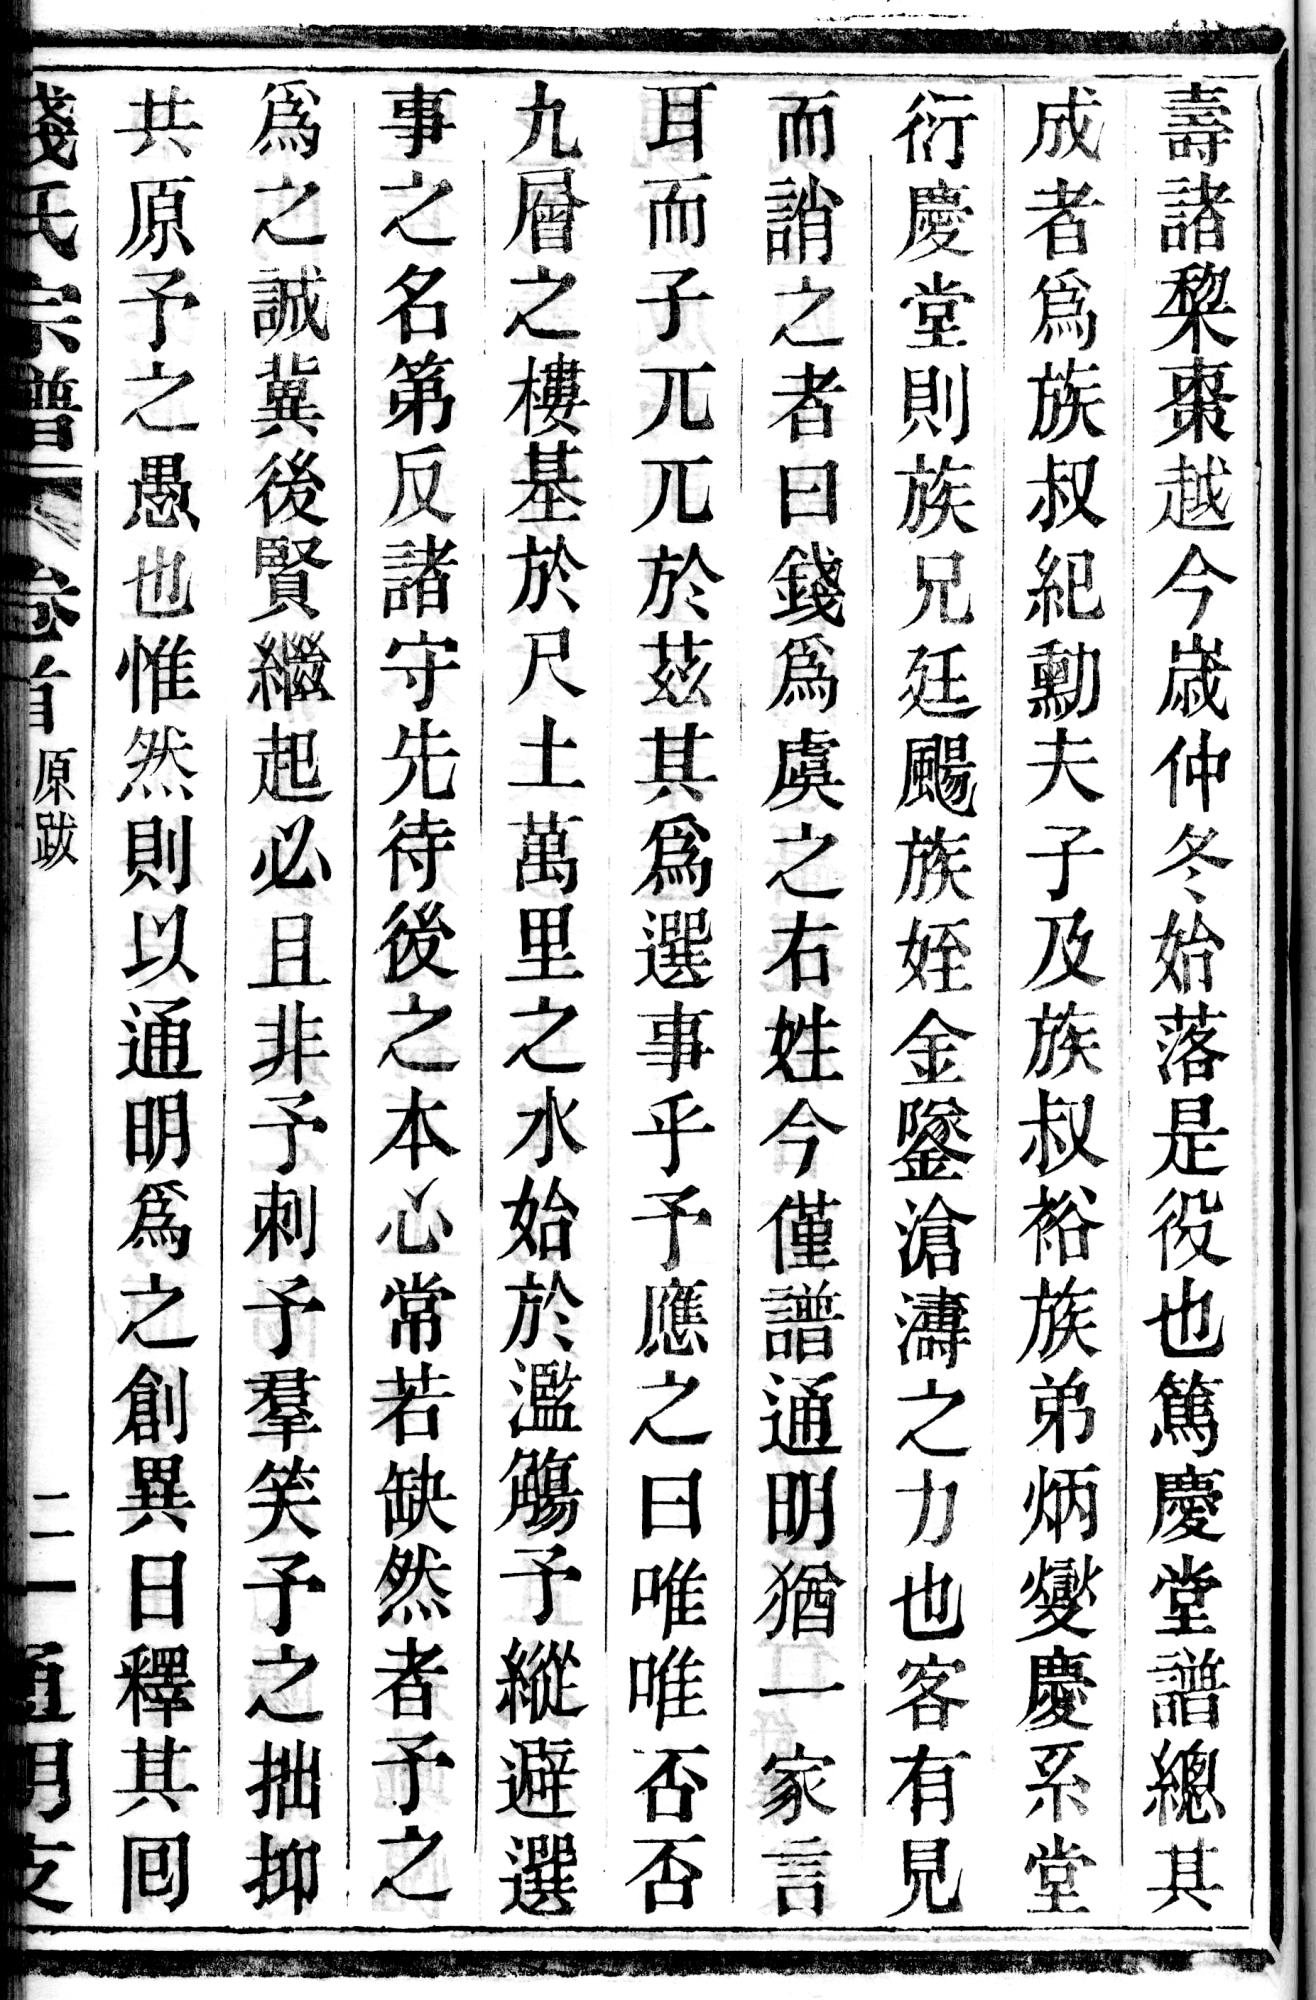 壽諸棃棗越今歲仲冬始落是役也篤慶堂譜總其
成者爲族叔紀勳夫子及族叔裕族弟炳燮慶系堂
衍慶堂則族兄廷颺族姪金鐆滄濤之力也客有見
而誚之者曰錢爲虞之右姓今僅譜通明猶一家言
耳而子兀兀於茲其爲選事乎予應之曰唯唯否否
九層之樓基於尺土萬里之水始於濫觴予縱避選
事之名第反諸守先待後之本心常若缺然者予之
爲之誠冀後賢繼起必且非予刺予羣笑予之拙抑
共原予之愚也惟然則以通明爲之創異日釋其回
錢氏宗譜 卷首 原跋 二 通明支